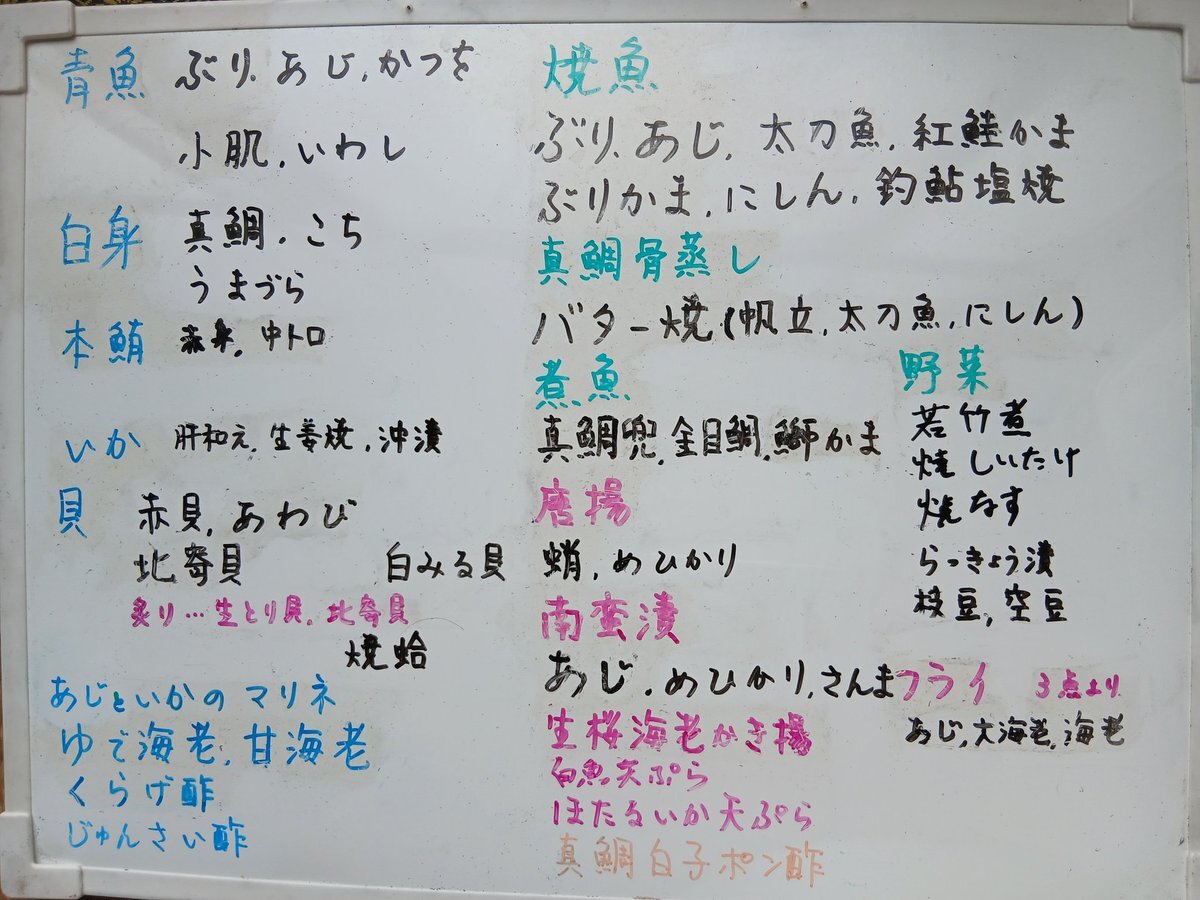 青魚 ぶり、あじ、かつを
小肌、いわし
白身 真鯛、こち
うまづら
本鮪 赤身、中トロ
いか 肝和え、生姜焼、沖漬
貝 赤貝、あわび
北寄貝 白みる貝
炙り…生とり貝、北寄貝
焼蛤
あじといかのマリネ
ゆで海老、甘海老
くらげ酢
じゅんさい酢
焼魚
ぶり、あじ、太刀魚、紅鮭かま
ぶりかま、にしん、釣鮎塩焼
真鯛骨蒸し
バター焼(帆立、太刀魚、にしん)
煮魚
真鯛兜、金目鯛、鰤かま
唐揚
蛸、めひかり
南蛮漬
あじ、めひかり、さんま
生桜海老かき揚
白魚天ぷら
ほたるいか天ぷら
真鯛白子ポン酢
野菜
若竹煮
焼しいたけ
焼なす
らっきょう漬
枝豆、空豆
フライ 3点より
あじ、大海老、海老